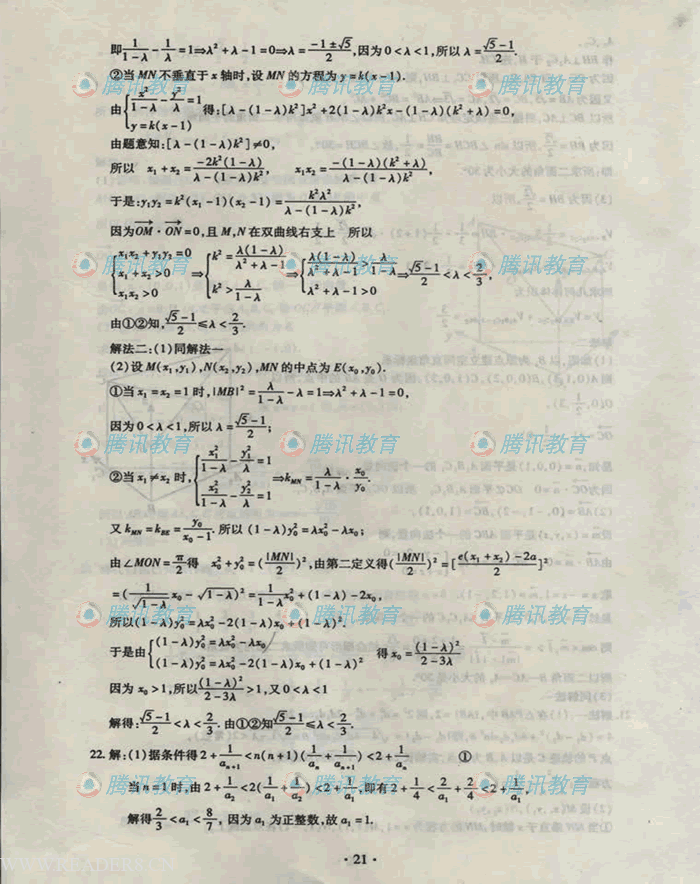 即1/(1-λ) - 1/λ = 1⇒λ²+λ-1=0⇒λ=(-1±√5)/2,因为0<λ<1,所以λ=(√5-1)/2.
②当MN不垂直于x轴时,设MN的方程为y=k(x-1).
由{x²/(1-λ) - y²/λ = 1
y=k(x-1) 得:[λ-(1-λ)k²]x²+2(1-λ)k²x-(1-λ)(k²+λ)=0,
由题意知:[λ-(1-λ)k²]≠0,
所以 x₁+x₂=-2k²(1-λ)/(λ-(1-λ)k²), x₁x₂=-(1-λ)(k²+λ)/(λ-(1-λ)k²),
于是:y₁y₂=k²(x₁-1)(x₂-1)=k²λ²/(λ-(1-λ)k²),
因为OM·ON=0,且M,N在双曲线右支上 所以
{x₁x₂+y₁y₂=0
x₁+x₂>0
x₁x₂>0 ⇒{k²=λ(1-λ)/(λ²+λ-1)
k²>λ/(1-λ) ⇒{λ(1-λ)/(λ²+λ-1)>λ/(1-λ)
λ²+λ-1>0 ⇒(√5-1)/2<λ<2/3,
由①②知,(√5-1)/2≤λ<2/3.
解法二:(1)同解法一
(2)设M(x₁,y₁),N(x₂,y₂),MN的中点为E(x₀,y₀).
①当x₁=x₂=1时,|MB|²=λ/(1-λ)-λ=1⇒λ²+λ-1=0,
因为0<λ<1,所以λ=(√5-1)/2;
②当x₁≠x₂时,{x₁²/(1-λ) - y₁²/λ = 1
x₂²/(1-λ) - y₂²/λ = 1 ⇒k_MN=λ/(1-λ)·x₀/y₀.
又k_MN=k_BE=y₀/(x₀-1).所以(1-λ)y₀²=λx₀²-λx₀;
由∠MON=π/2得 x₀²+y₀²=(|MN|/2)²,由第二定义得(|MN|/2)²=[(e(x₁+x₂)-2a)/2]²
=(1/√(1-λ) x₀-√(1-λ))²=1/(1-λ) x₀²+(1-λ)-2x₀,
所以(1-λ)y₀²=λx₀²-2(1-λ)x₀+(1-λ)².
于是由{(1-λ)y₀²=λx₀²-λx₀
(1-λ)y₀²=λx₀²-2(1-λ)x₀+(1-λ)² 得x₀=(1-λ)²/(2-3λ)
因为x₀>1,所以(1-λ)²/(2-3λ)>1,又0<λ<1
解得:(√5-1)/2<λ<2/3.由①②知(√5-1)/2≤λ<2/3.
22.解:(1)据条件得2+1/aₙ₊₁<n(n+1)(1/aₙ+1/aₙ₊₁)<2+1/aₙ ①
当n=1时,由2+1/a₂<2(1/a₁+1/a₂)<2+1/a₁,即有2+1/4<2/a₁+2/4<2+1/a₁,
解得2/3<a₁<8/7, 因为a₁为正整数,故a₁=1.
·21·
腾讯教育